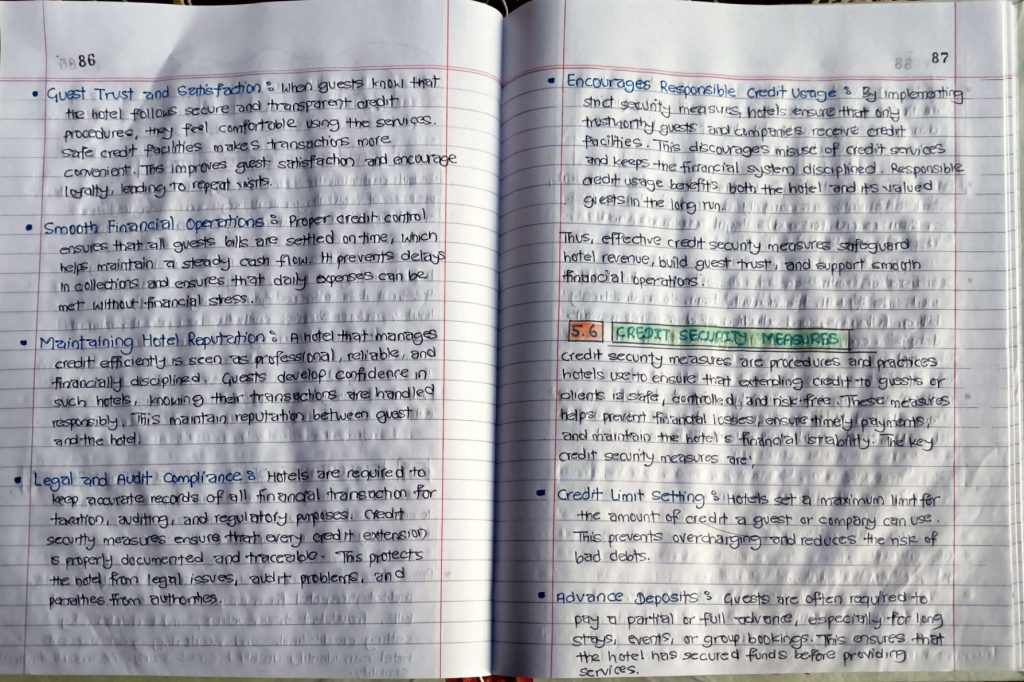 86
• Guest Trust and Satisfaction : When guests know that
the hotel follows secure and transparent credit
procedures, they feel comfortable using the services.
Safe credit facilities makes transactions more
convenient. This improves guest satisfaction and encourage
loyalty, leading to repeat visits.
• Smooth Financial Operations : Proper credit control
ensures that all guests bills are settled on time, which
helps maintain a steady cash flow. It prevents delays
in collections and ensures that daily expenses can be
met without financial stress.
• Maintaining Hotel Reputation : A hotel that manages
credit efficiently is seen as professional, reliable, and
financially disciplined. Guests develop confidence in
such hotels, knowing their transactions are handled
responsibly. This maintain reputation between guest
and the hotel.
• Legal and Audit Compliance : Hotels are required to
keep accurate records of all financial transaction for
taxation, auditing, and regulatory purposes. Credit
security measures ensure that every credit extension
is properly documented and traceable. This protects
the hotel from legal issues, audit problems, and
penalties from authorities.
87
• Encourages Responsible Credit Usage : By implementing
strict security measures, hotels ensure that only
trustworthy guests and companies receive credit
facilities. This discourages misuse of credit services
and keeps the financial system disciplined. Responsible
credit usage benefits both the hotel and its valued
guests in the long run.
Thus, effective credit security measures safeguard
hotel revenue, build guest trust, and support smooth
financial operations.
5.6 CREDIT SECURITY MEASURES
Credit security measures are procedures and practices
hotels use to ensure that extending credit to guests or
clients is safe, controlled, and risk-free. These measures
helps prevent financial losses, ensure timely payments,
and maintain the hotel's financial stability. The key
credit security measures are,
• Credit Limit Setting : Hotels set a maximum limit for
the amount of credit a guest or company can use.
This prevents overcharging and reduces the risk of
bad debts.
• Advance Deposits : Guests are often required to
pay a partial or full advance, especially for long
stays, events, or group bookings. This ensures that
the hotel has secured funds before providing
services.